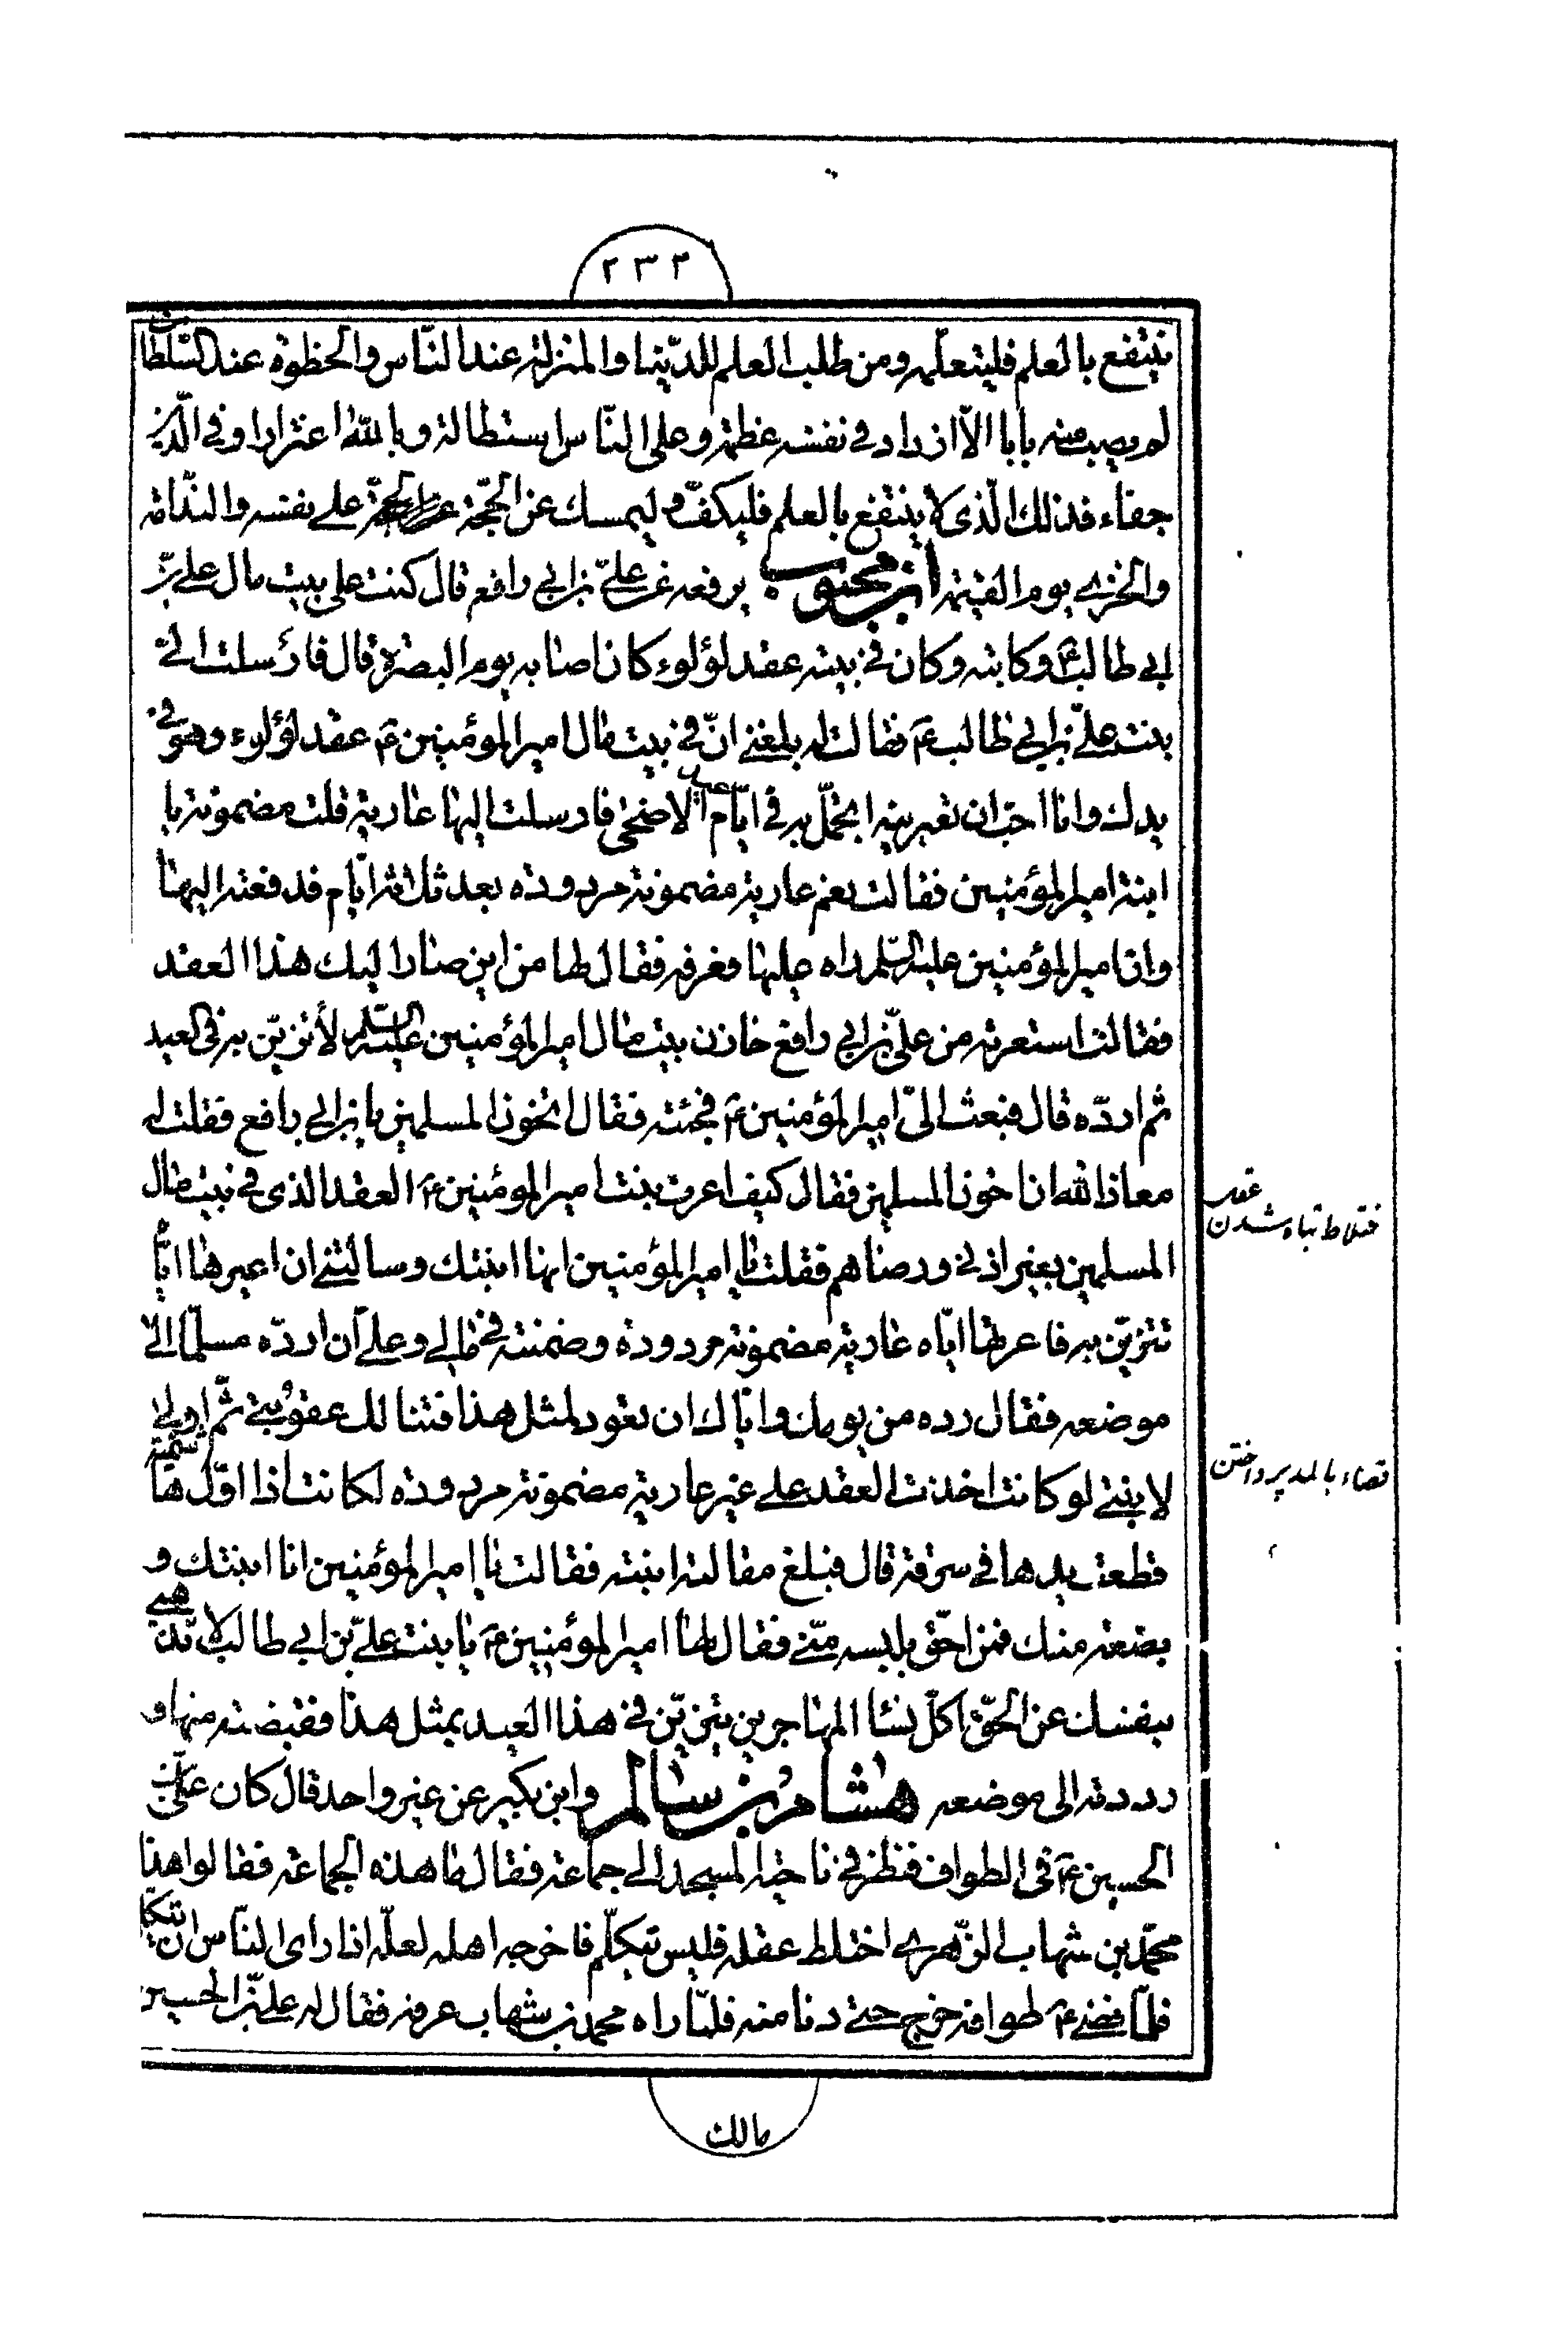 ٢٣٢
ينتفع بالعلم فليتعلمه ومن طلب العلم للدّنيا والمنزلة عند النّاس والحظوة عند السّلطان
لم يصب منه بابا الاّ ازداد في نفسه عظمة وعلى النّاس استطالة وبالله اغترارا وفي الدّين
جفاء فذلك الّذى لا ينتفع بالعلم فليكفّ وليمسك عن الحجّة على نفسه والنّدامة
والخزى يوم القيمة ابن محبوب يرفعه عن علىّ بن ابي رافع قال كنت على بيت مال على بن
ابي طالب ع وكاتبه وكان في بيته عقد لؤلوء كان اصابه يوم البصرة قال فارسلت الىّ
بنت علىّ بن ابي طالب ع فقالت له بلغني انّ في بيت مال امير المؤمنين ع عقد لؤلوء وهو في
يدك وانا احبّ ان تعيرنيه اتجمّل به في ايّام عيد الاضحى فارسلت اليها عارية قلت مضمونة يا
ابنة امير المؤمنين فقالت نعم عارية مضمونة مردودة بعد ثلاثة ايّام فدفعته اليها
وان امير المؤمنين عليه السّلم راه عليها فعرفه فقال لها من اين صار اليك هذا العقد
فقالت استعرته من علىّ بن ابي رافع خازن بيت مال امير المؤمنين عليه السّلم لأتزيّن به في العيد
ثم اردّه قال فبعث الىّ امير المؤمنين ع فجئته فقال اتخون المسلمين يا بن ابي رافع فقلت له
معاذ الله ان اخون المسلمين فقال كيف اعرت بنت امير المؤمنين ع العقد الذى في بيت مال
المسلمين بغير اذني ورضاهم فقلت يا امير المؤمنين انها ابنتك وسالتني ان اعيرها ايّاه
تتزيّن به فاعرتها ايّاه عارية مضمونة مردودة وضمنته في مالي وعلىّ ان اردّه مسلّما الى
موضعه فقال رده من يومك وايّاك ان تعود لمثل هذا فتنالك عقوبتي ثمّ اولى
لابنتي لو كانت اخذت العقد على غير عارية مضمونة مردودة لكانت اذا اوّل هاشمية
قطعت يدها في سرقة قال فبلغ مقالته ابنته فقالت يا امير المؤمنين انا ابنتك و
بضعة منك فمن احقّ بلبسه منّي فقال لها امير المؤمنين ع يا بنت علىّ بن ابي طالب لا تذهبي
بنفسك عن الحقّ اكلّ نساء المهاجرين يتزيّن في هذا العيد بمثل هذا فقبضته منها و
رددته الى موضعه هشام بن سالم وابن بكير عن غير واحد قال كان علىّ بن
الحسين ع في الطواف فنظر في ناحية المسجد الى جماعة فقال ما هذه الجماعة فقالوا هذا
محمّد بن شهاب الزّهرى اختلط عقله فليس يتكلّم فاخرجه اهله لعلّه اذا راى النّاس ان يتكلّم
فلمّا قضى ع طوافه خرج حتى دنا منه فلمّا راه محمد بن شهاب عرفه فقال له علىّ بن الحسين
مالك